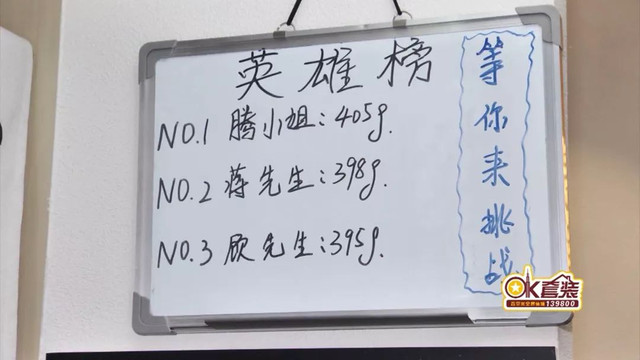 英雄榜
NO.1 腾小姐:405g.
NO.2 蒋先生:398g.
NO.3 顾先生:395g.
等你来挑战
OK套装
139800